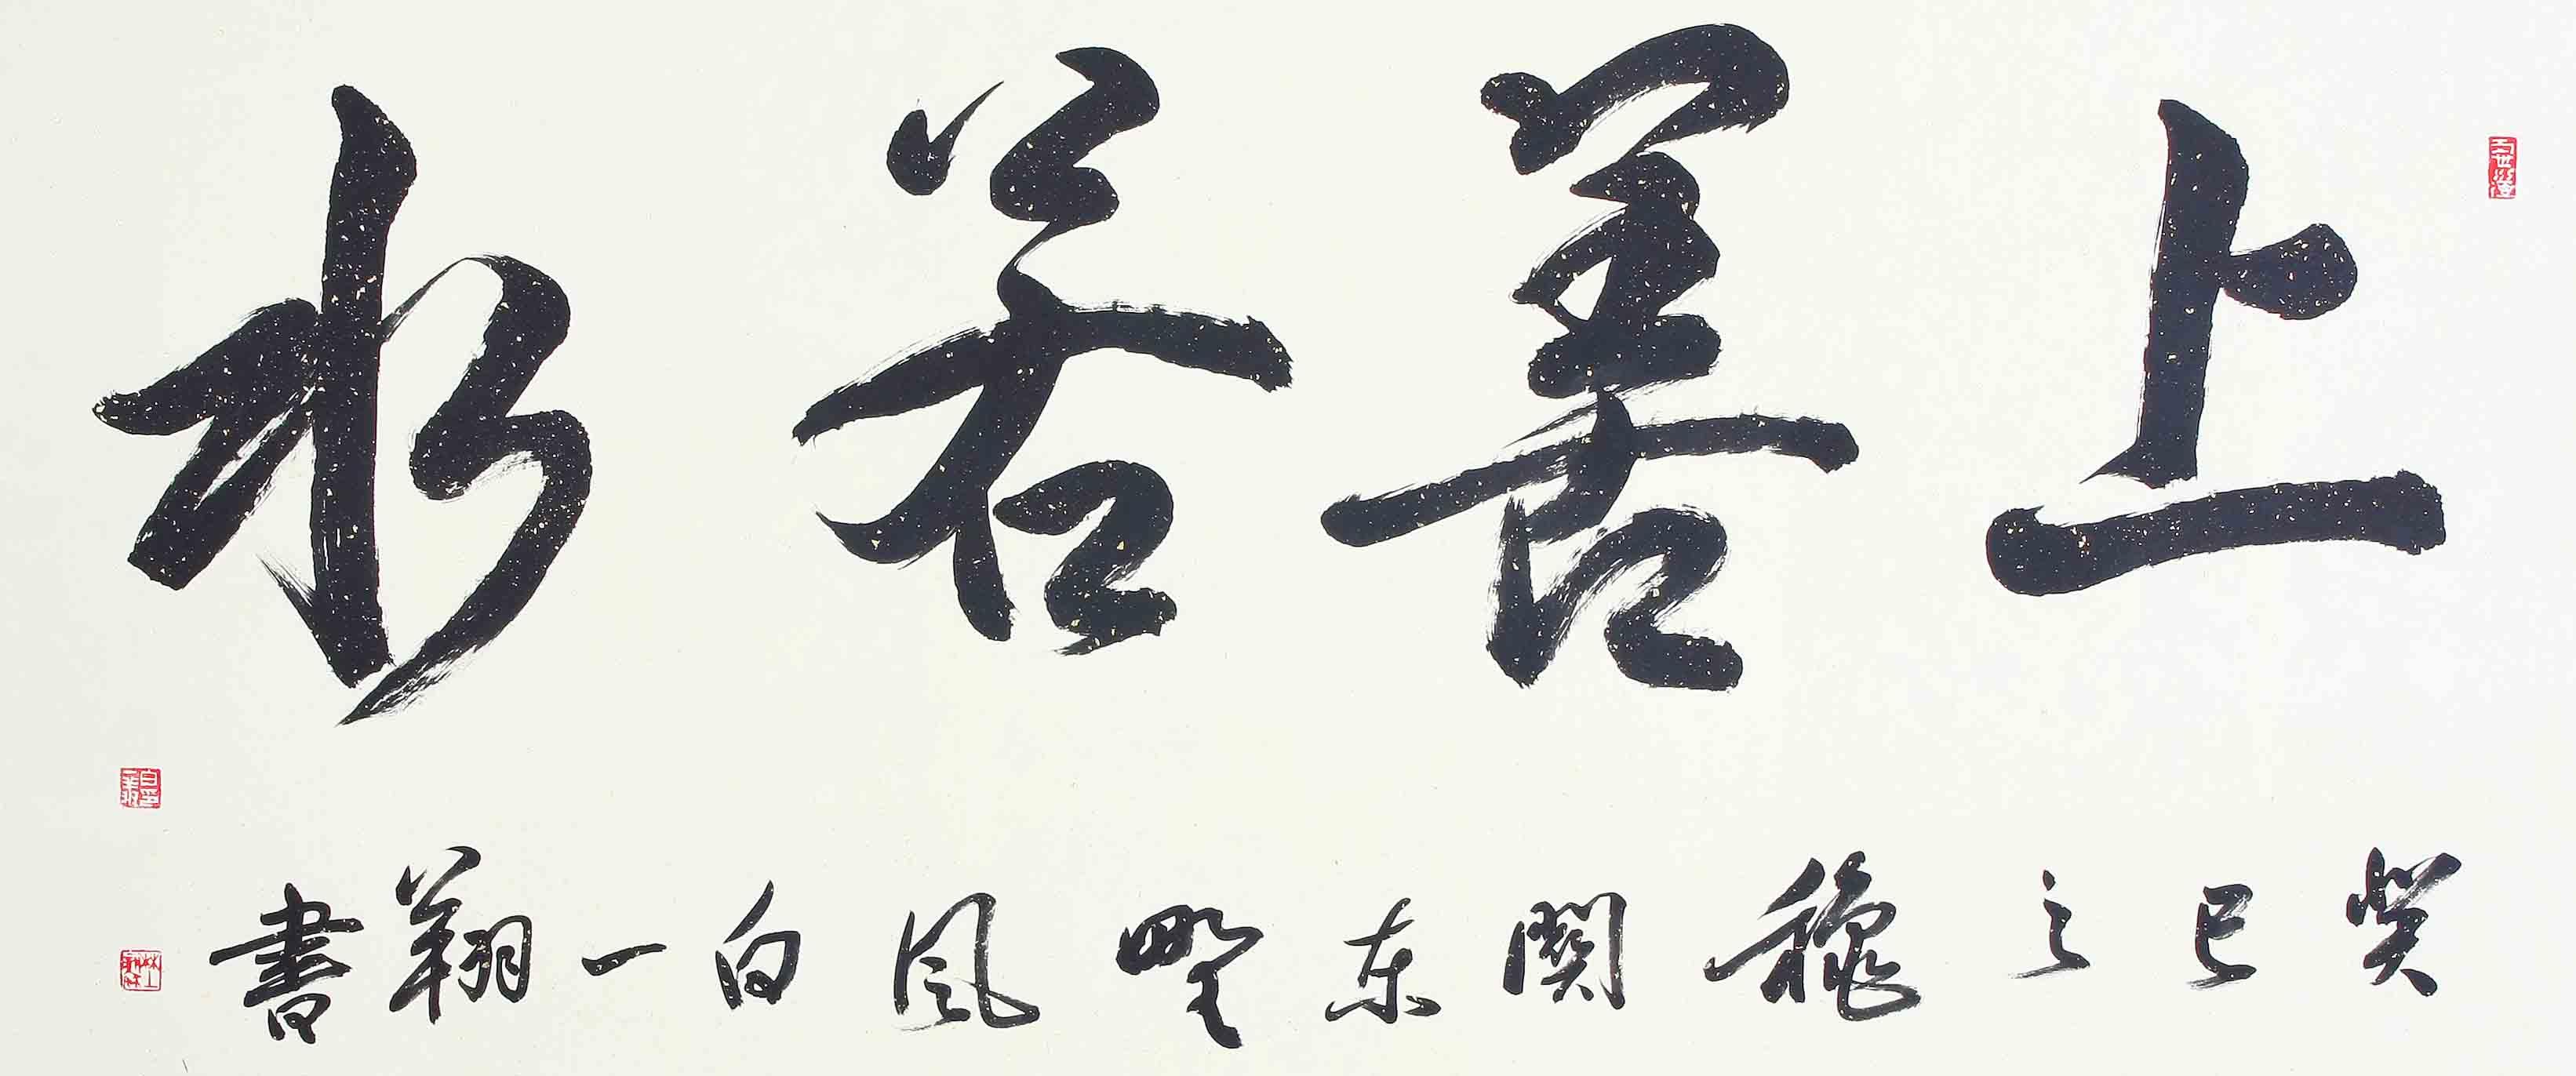 上善若水
癸巳之龝關東野風白一翔書